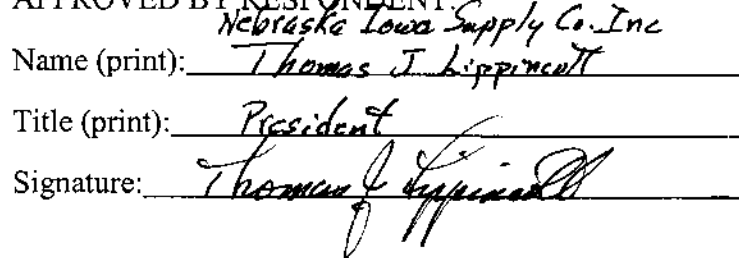 APPROVED BY RESPONDENT:
Nebraska Iowa Supply Co. Inc
Name (print): Thomas J Lippincott
Title (print): President
Signature: Thomas J Lippincott